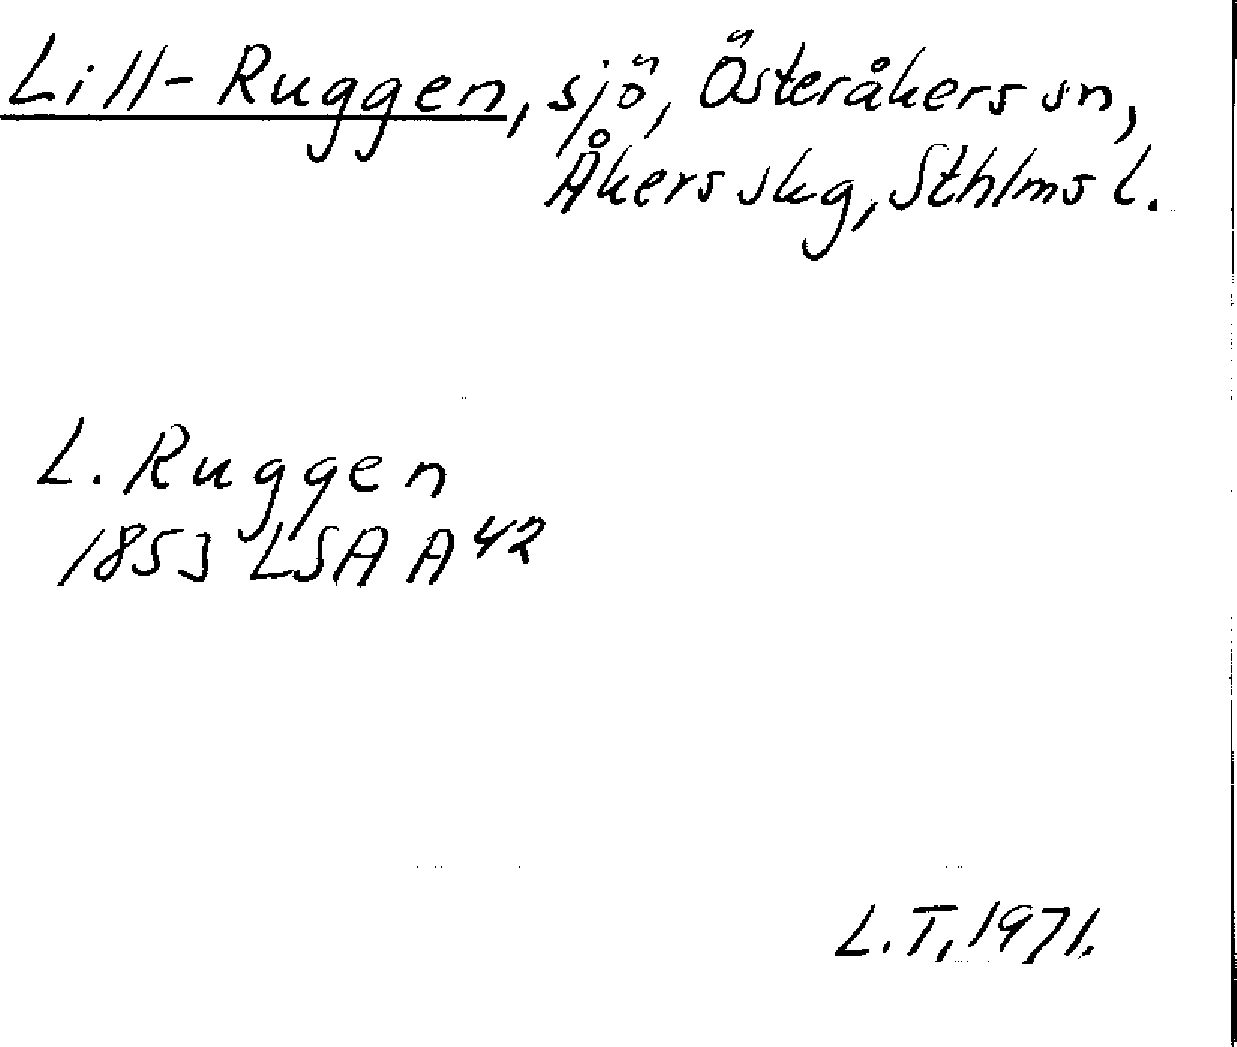 Lill-Ruggen, sjö, Österåkers sn,
Åkers skg, Sthlms l.
L. Ruggen
1853 LSA A 42
L.T, 1971.